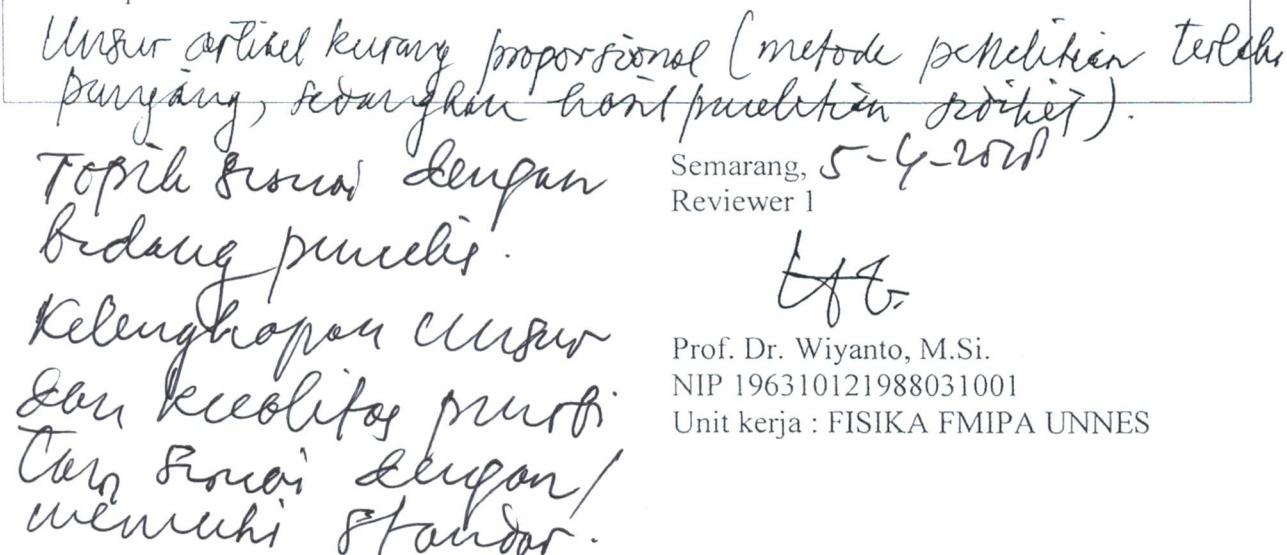 Unsur artikel kurang proporsional (metode penelitian terlalu
panjang, sedangkan hasil penelitian sedikit).
Topik sesuai dengan
bidang penulis.
Kelengkapan unsur
dan kualitas penerbi
tan sesuai dengan/
memenuhi standar.
Semarang, 5-4-2018
Reviewer 1
Prof. Dr. Wiyanto, M.Si.
NIP 196310121988031001
Unit kerja : FISIKA FMIPA UNNES